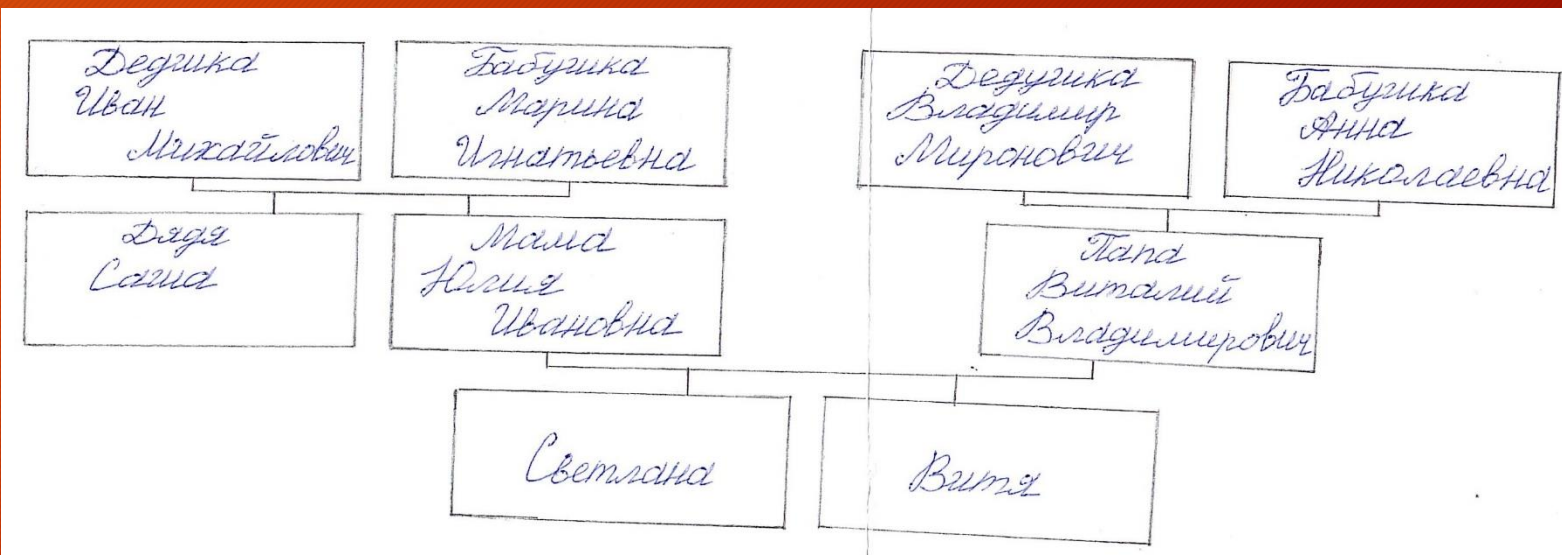 Дедушка
Иван
Михайлович
Бабушка
Марина
Игнатьевна
Дедушка
Владимир
Миронович
Бабушка
Анна
Николаевна
Дядя
Саша
Мама
Юлия
Ивановна
Папа
Виталий
Владимирович
Светлана
Витя